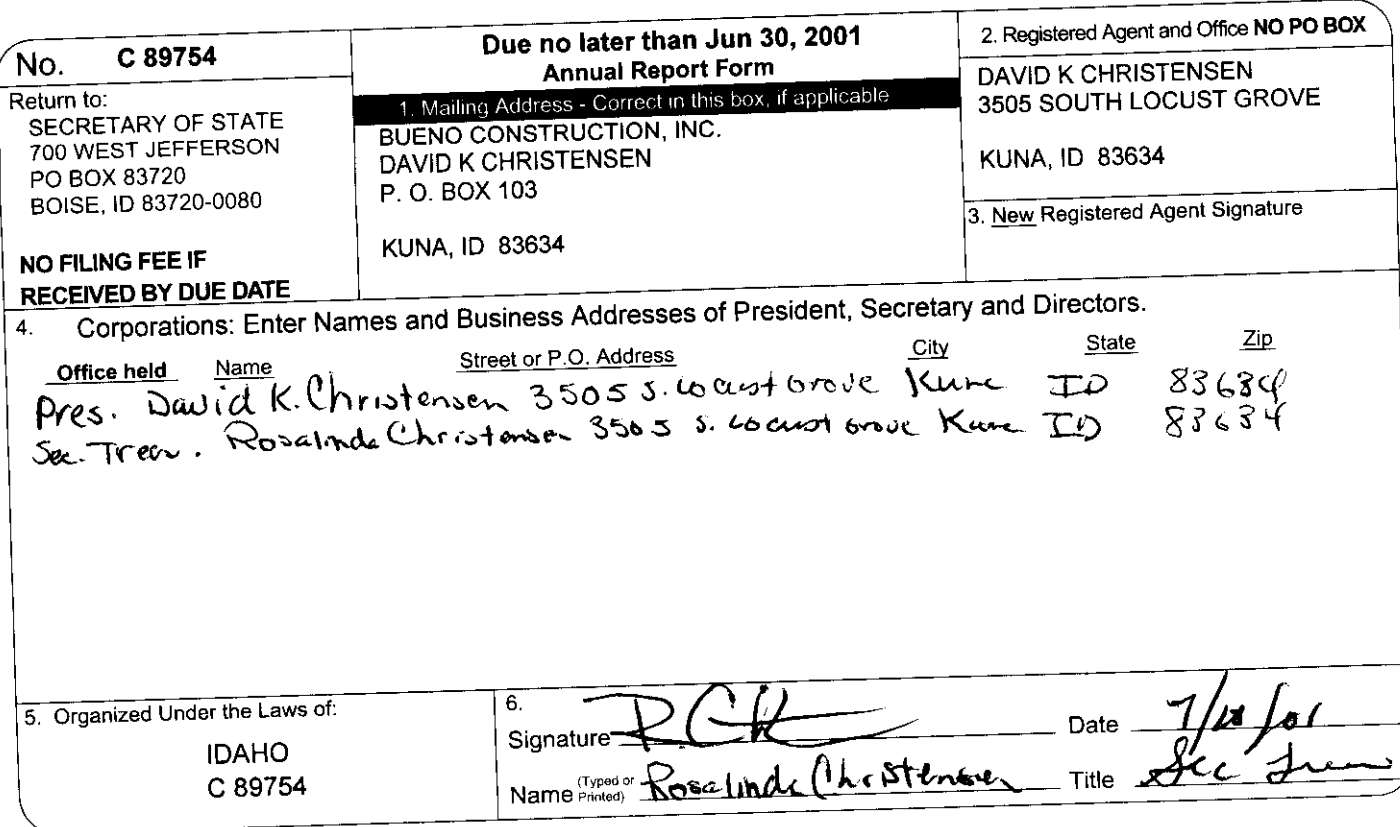 No. C 89754
Return to:
SECRETARY OF STATE
700 WEST JEFFERSON
PO BOX 83720
BOISE, ID 83720-0080
NO FILING FEE IF
RECEIVED BY DUE DATE
Due no later than Jun 30, 2001
Annual Report Form
1. Mailing Address - Correct in this box, if applicable
BUENO CONSTRUCTION, INC.
DAVID K CHRISTENSEN
P. O. BOX 103
KUNA, ID 83634
2. Registered Agent and Office NO PO BOX
DAVID K CHRISTENSEN
3505 SOUTH LOCUST GROVE
KUNA, ID 83634
3. New Registered Agent Signature
4. Corporations: Enter Names and Business Addresses of President, Secretary and Directors.
Office held Name Street or P.O. Address City State Zip
Pres. David K. Christensen 3505 S. Locust Grove Kuna ID 83634
Sec. Treas. Rosalinda Christensen 3505 S. Locust Grove Kuna ID 83634
5. Organized Under the Laws of:
IDAHO
C 89754
6.
Signature Date
Name (Typed or Printed) Rosalinda Christensen Title Sec Treas